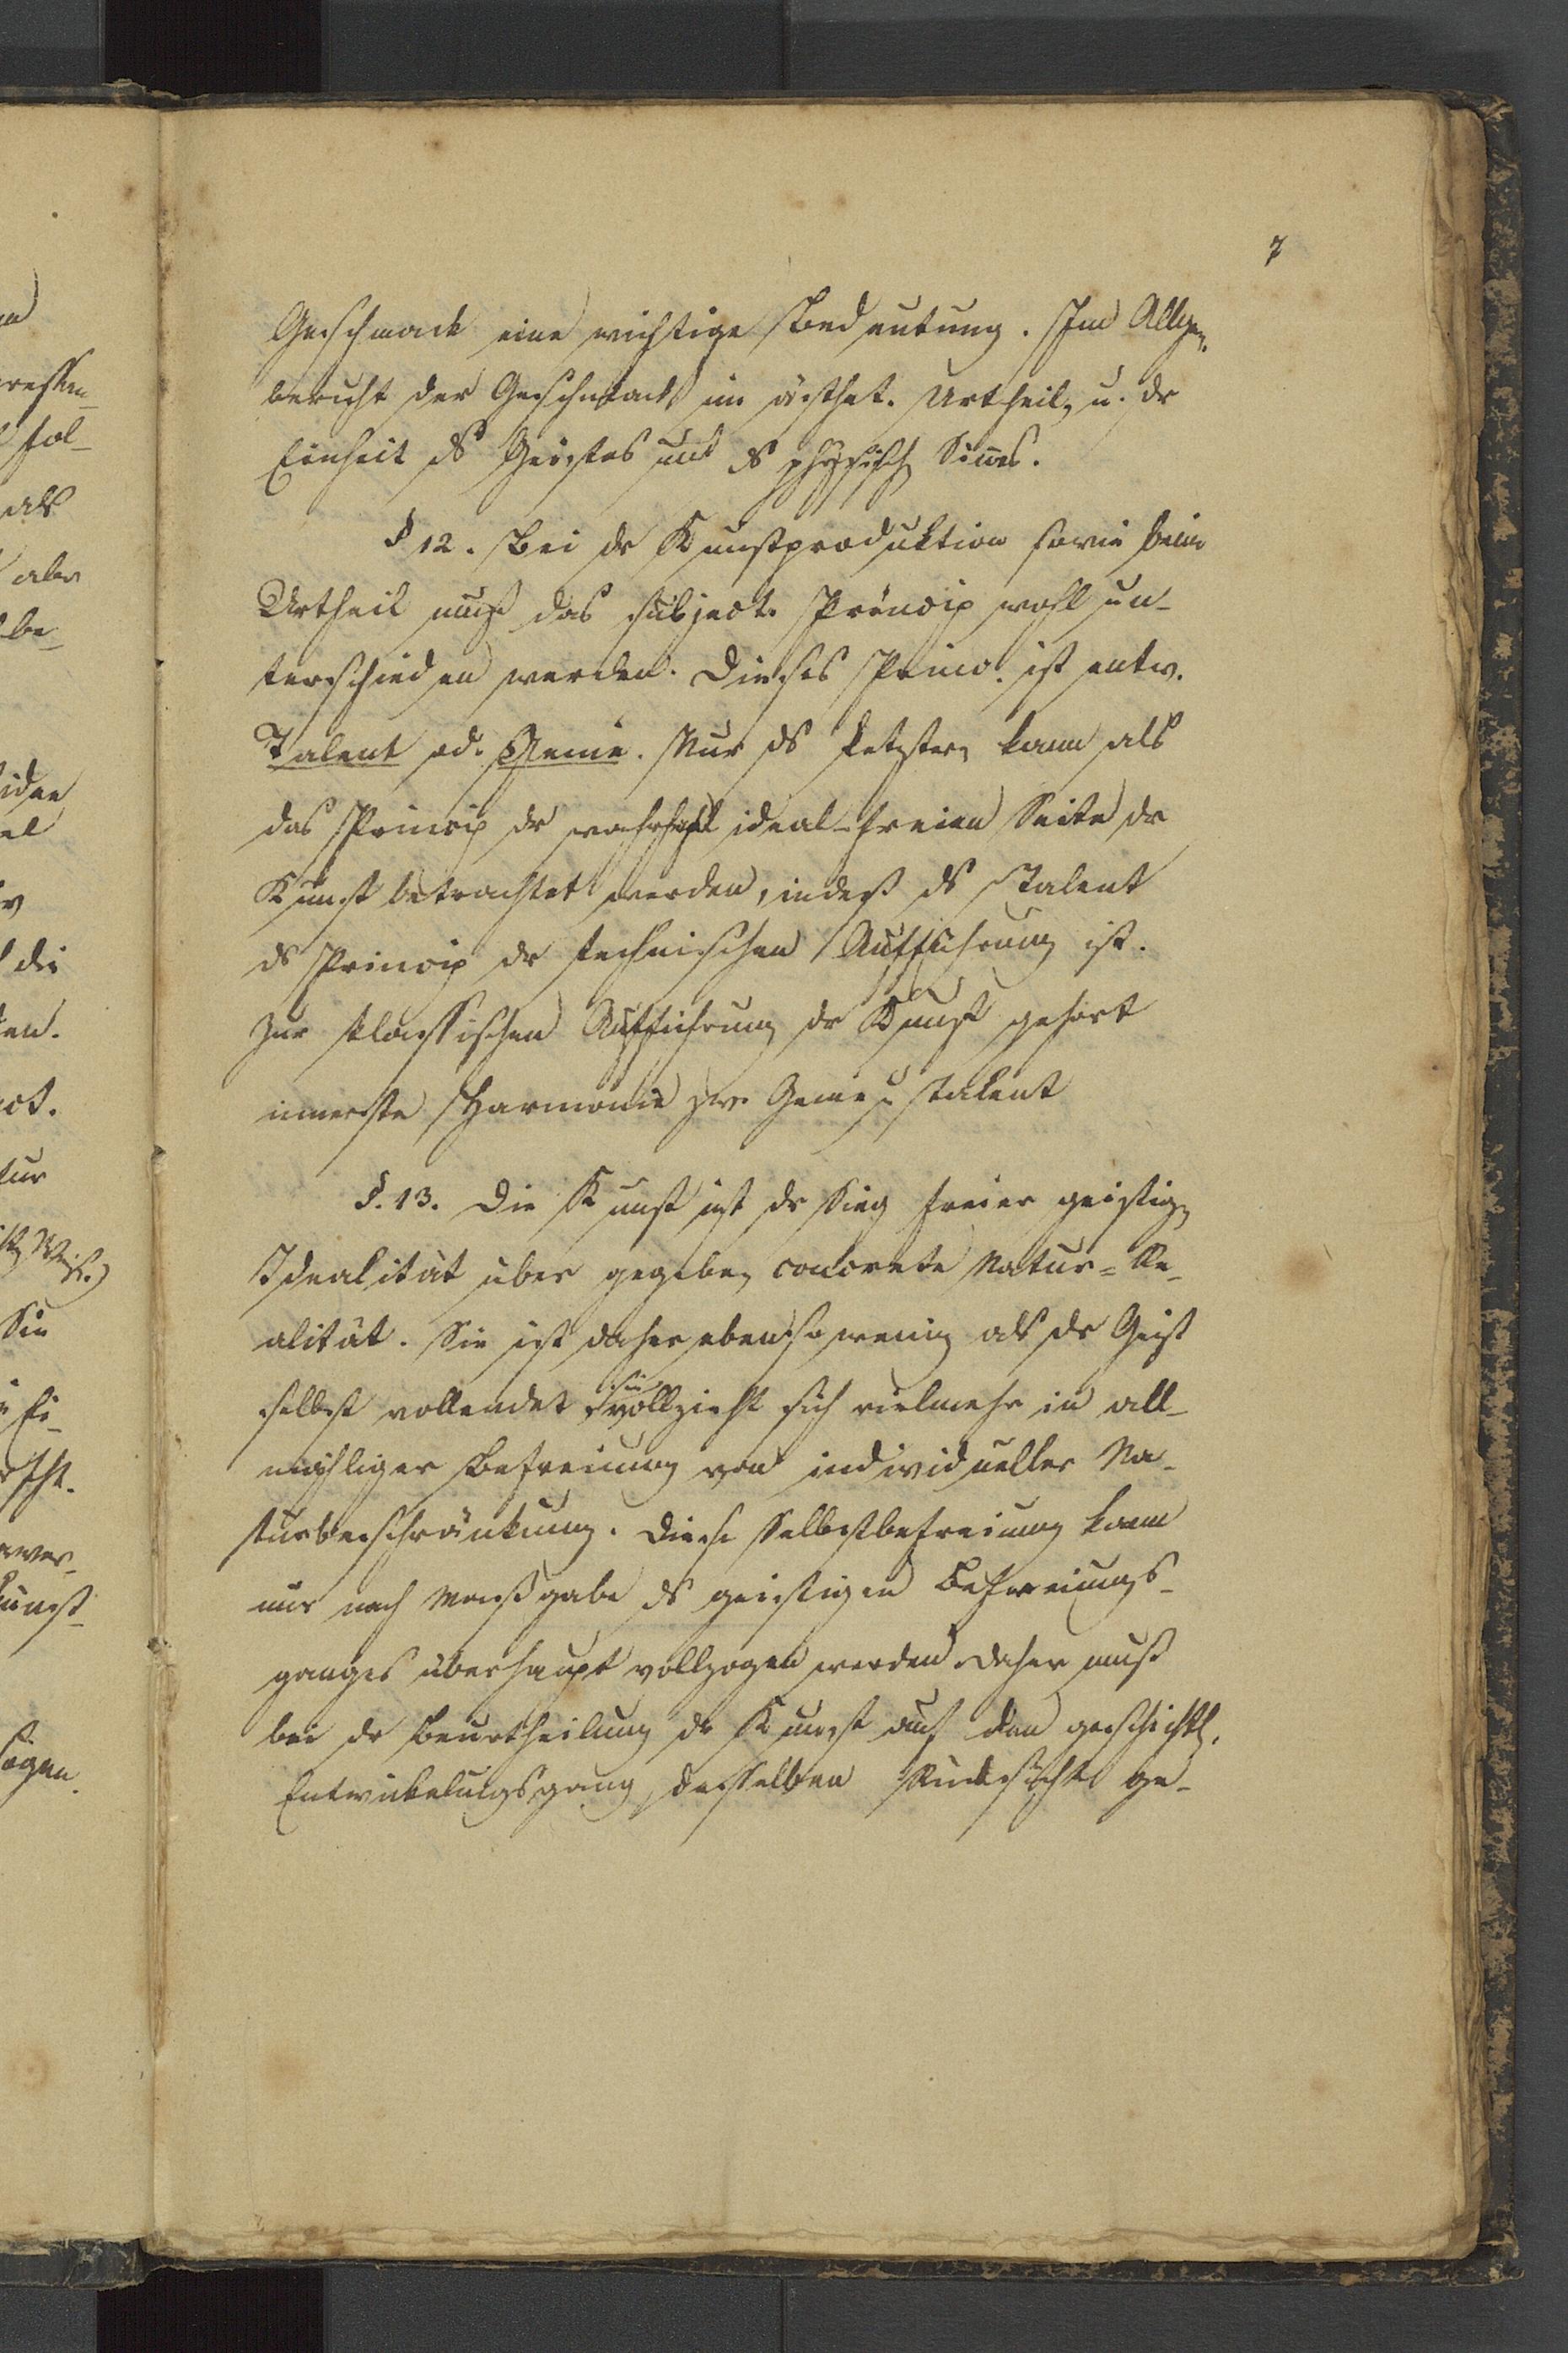 7
Geschmack eine wichtige Bedeutung. Im Allgem.
beruht der Geschmack im ästhet. Urtheil, u. dr
Einheit ds Geistes und ds physisch Sinnes.
§ 12. Bei dr Kunstproduktion sowie beim
Urtheil muß das subject. Princip wohl un-
terschieden werden. Dieses Princ. ist entw.
Talent od. Genie. Nur ds letztere kann als
das Princip dr wahrhaft ideal-freien Seite dr
Kunst betrachtet werden, indeß ds Talent
ds Princip dr technischen Aufführung ist.
Zur klassischen Aufführung dr Kunst gehört
innerste Harmonie zw. Genie u. Talent
§. 13. Die Kunst ist dr Sieg freier geistig
Idealität über gegeben concrete Natur=Re-
alität. Sie ist daher ebensowenig als dr Geist
selbst vollendet, sie vollzieht sich vielmehr in all-
mähliger Befreiung von individueller Na-
turbeschränkung. Diese Selbstbefreiung kann
nur nach Maßgabe ds geistigen Befreiungs-
ganges überhaupt vollzogen werden. Daher muß
bei dr Beurtheilung dr Kunst auf den geschichtl.
Entwickelungsgang derselben Rücksicht ge-